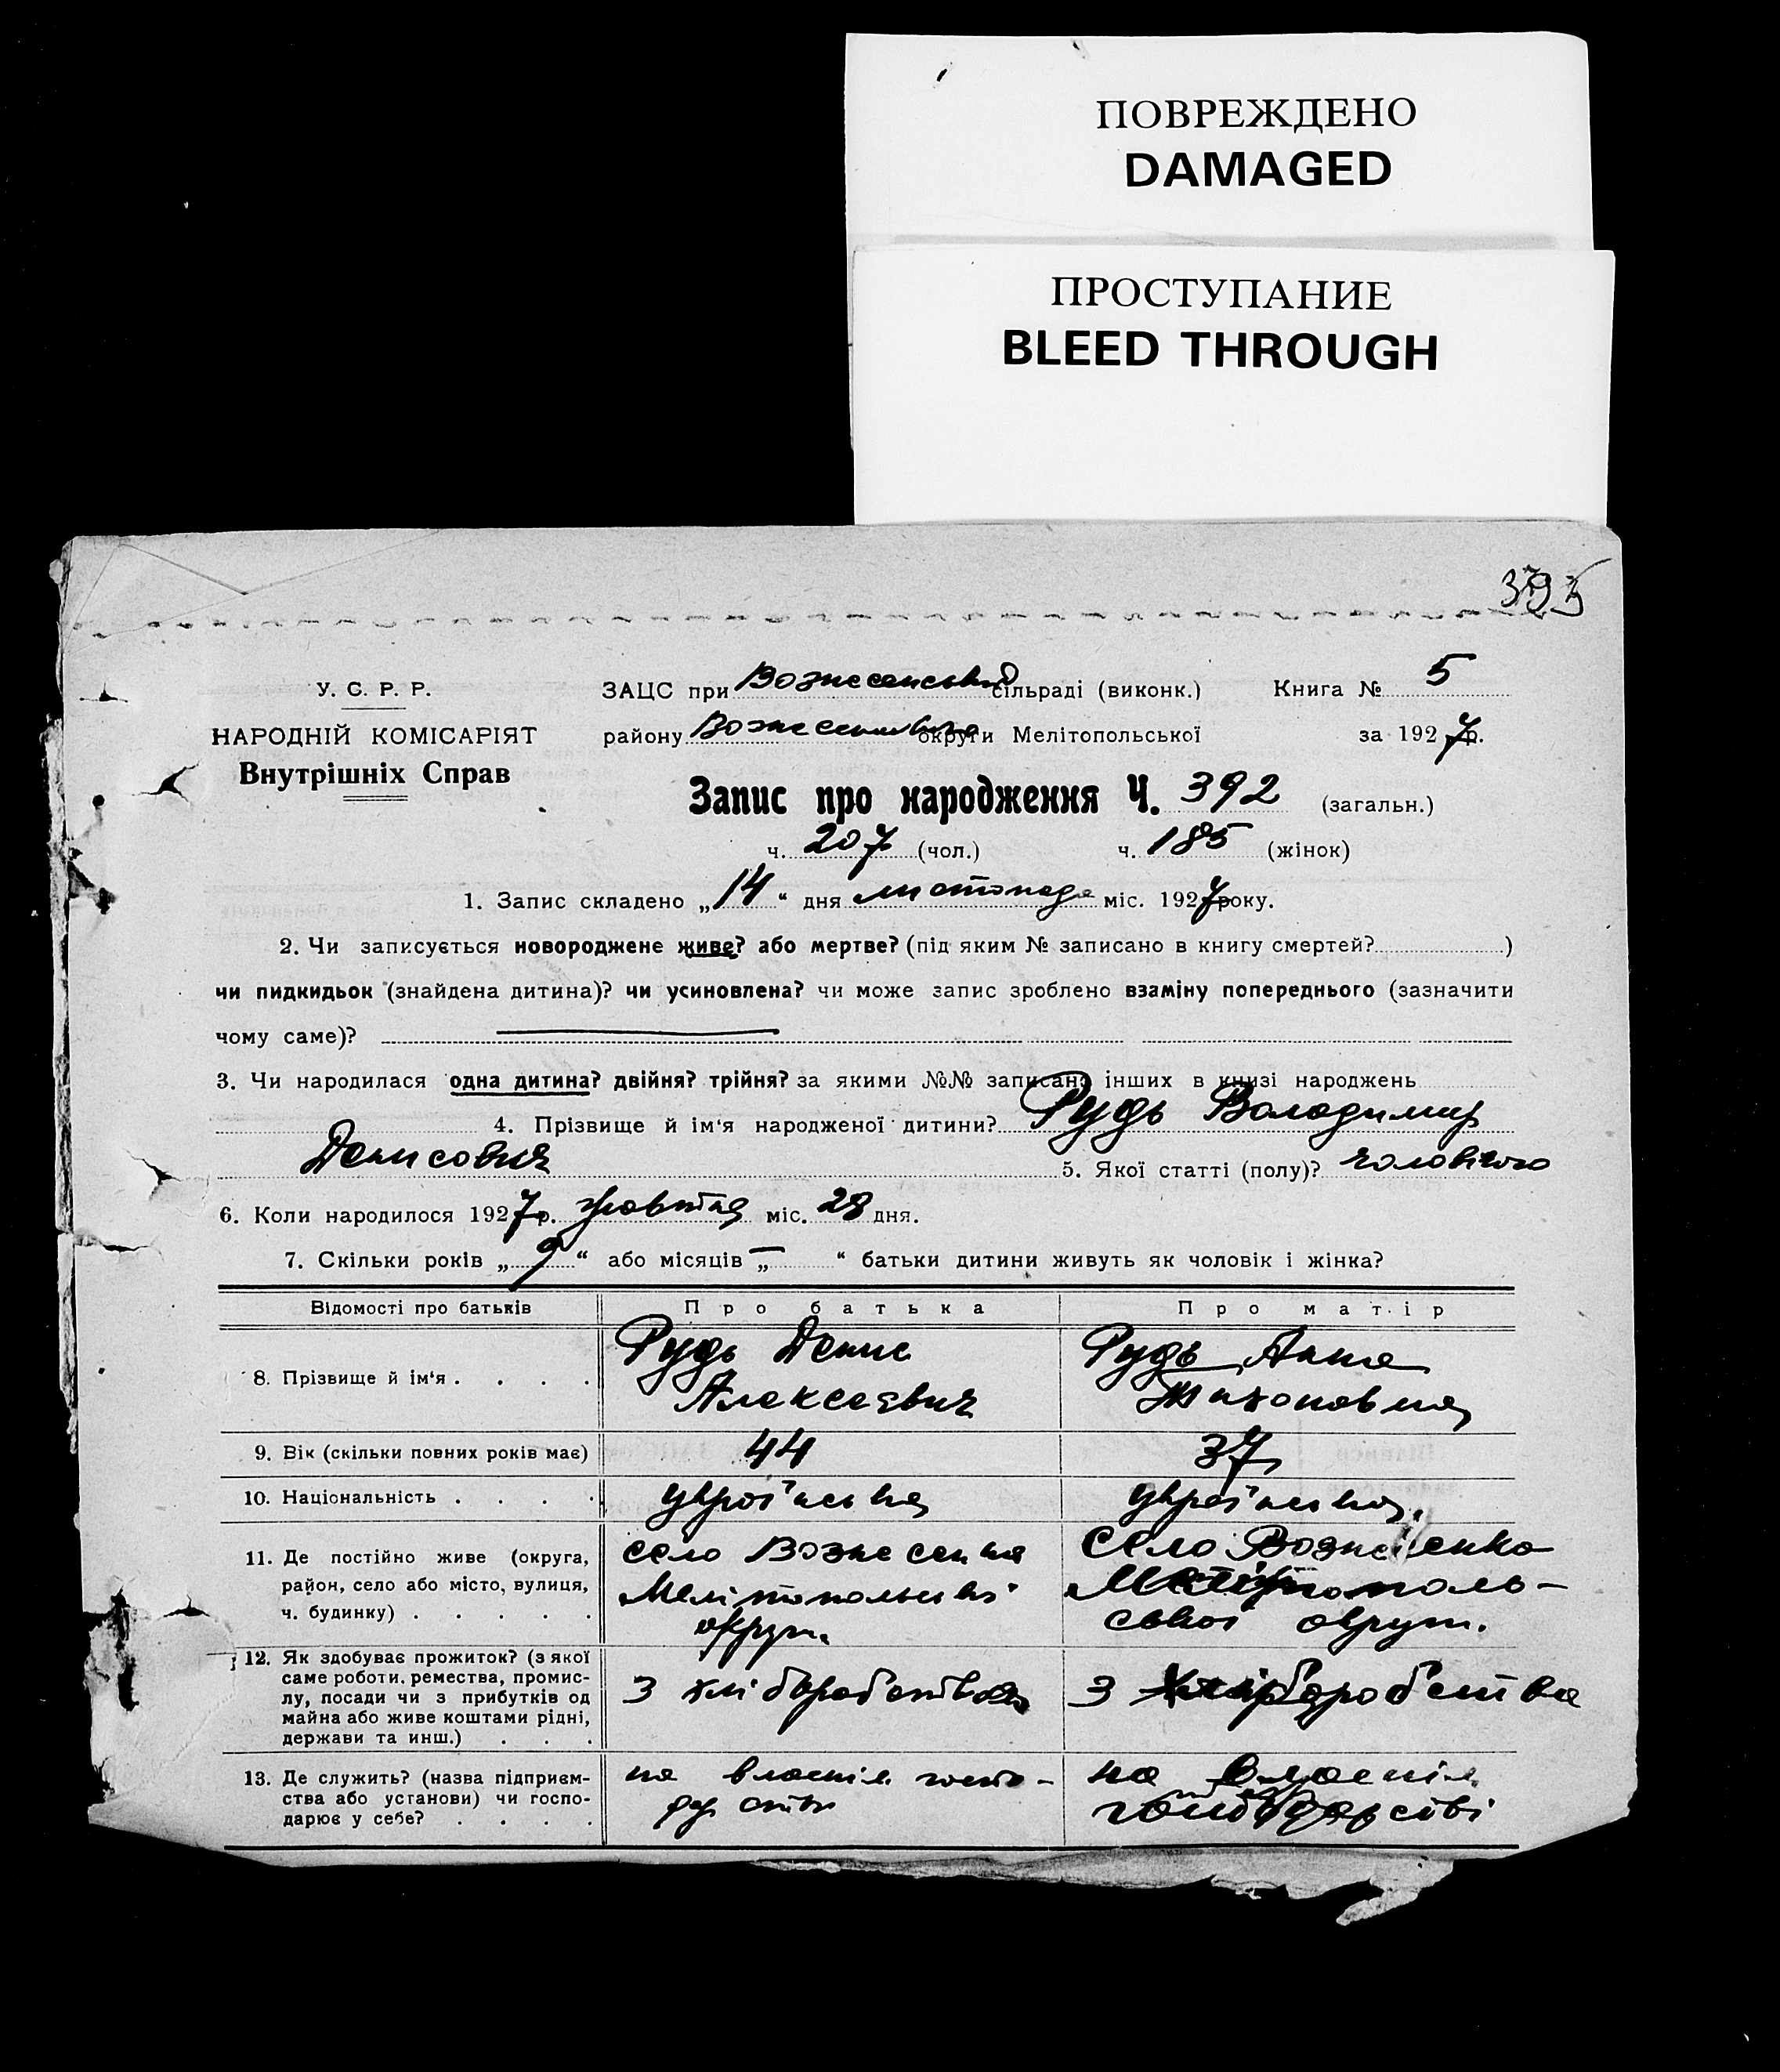 ПОВРЕЖДЕНО
DAMAGED
ПРОСТУПАНИЕ
BLEED THROUGH
У. С. Р. Р.
НАРОДНІЙ КОМІСАРІЯТ
Внутрішніх Справ
ЗАЦС при Вознесенській сільраді (виконк.) Книга № 5
району Вознесенська округи Мелітопольської за 1927 р.
Запис про народження Ч. 392 (загальн.)
ч. 207 (чол.) ч. 185 (жінок)
1. Запис складено „14“ дня листопада міс. 1927 року.
2. Чи записується новороджене живе? або мертве? (під яким № записано в книгу смертей? )
чи пидкидьок (знайдена дитина)? чи усиновлена? чи може запис зроблено взаміну попереднього (зазначити
чому саме)?
3. Чи народилася одна дитина? двійня? трійня? за якими №№ записано інших в книзі народжень
4. Прізвище й ім'я народженої дитини? Рудь Володимир
Денисович 5. Якої статті (полу)? чоловічого
6. Коли народилося 1927 р. жовтня міс. 28 дня.
7. Скільки років „9“ або місяців „—“ батьки дитини живуть як чоловік і жінка?
Відомості про батьків Про батька Про матір
8. Прізвище й ім'я . . . . Рудь Денис Алексеевич Рудь Анна Тихоновна
9. Вік (скільки повних років має) 44 37
10. Національність . . . . українська українська
11. Де постійно живе (округа, район, село або місто, вулиця, ч. будинку) . . . . . село Вознесенка Мелітопольської округи село Вознесенка Мелітопольської округи.
12. Як здобуває прожиток? (з якої саме роботи, ремества, промислу, посади чи з прибутків од майна або живе коштами рідні, держави та инш.) . . . з хліборобства з хліборобства
13. Де служить? (назва підприємства або установи) чи господарює у себе? . . . . на власнім господарстві на власнім господарстві